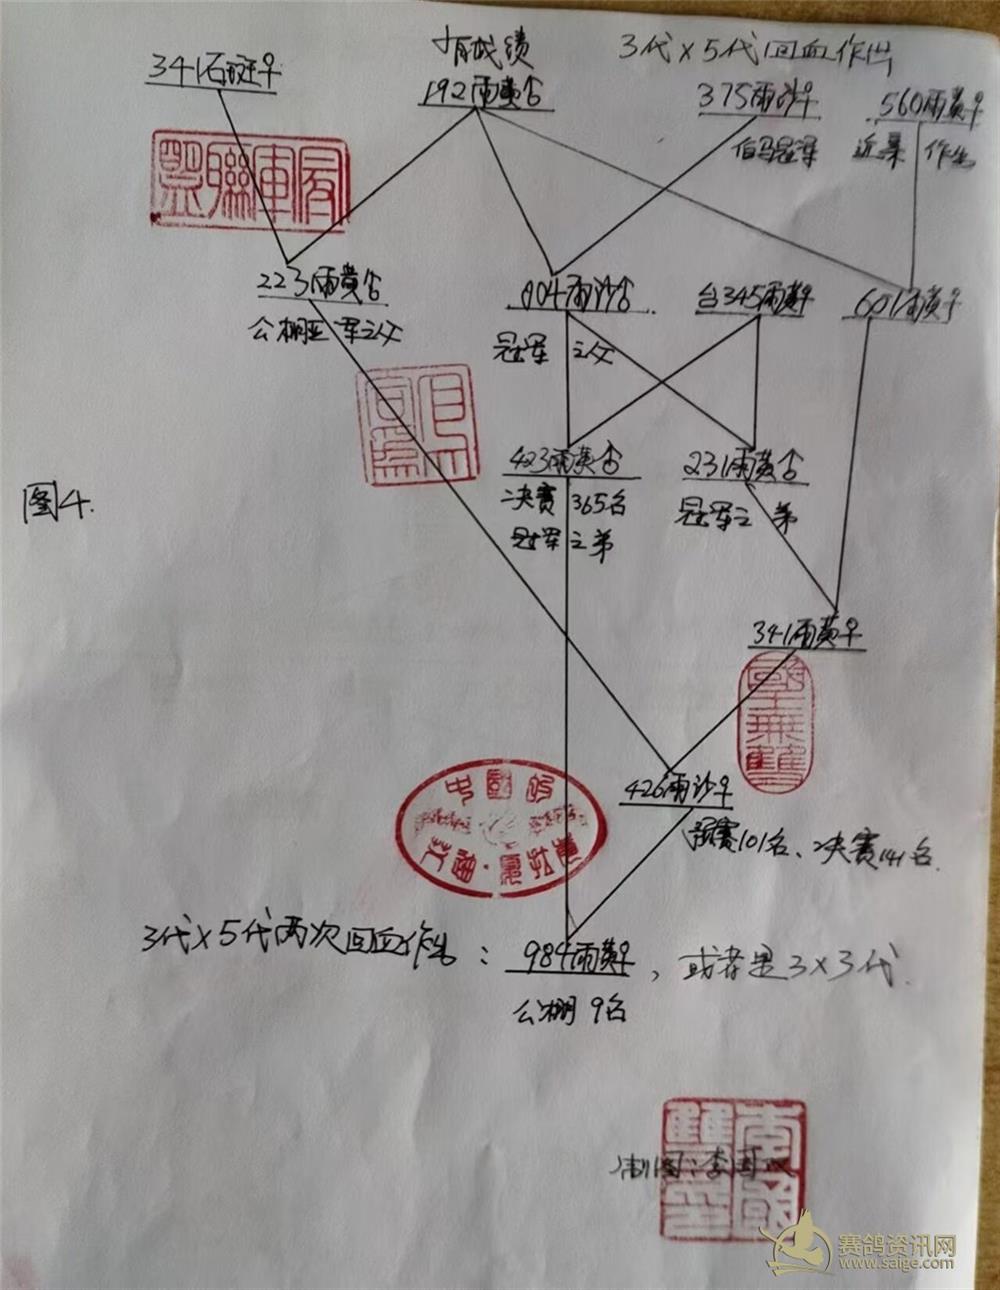 有战绩
3代×5代回血作出
341石斑♀
192雨黄♂
375雨沙♀
560雨黄♀
伯马冠军
近亲 作出
223雨黄♂
公棚亚军之父
804雨沙♂
台345雨黄♀
601雨黄♀
冠军之父
图4.
423雨黄♂
231雨黄♂
决赛365名
冠军之弟
冠军之弟
341雨黄♀
國士無雙
426雨沙♀
预赛101名、决赛141名.
3代×5代两次回血作出：984雨黄♀，或者是3×3代.
公棚9名
制图：李国双
赛鸽资讯网
www.saige.com